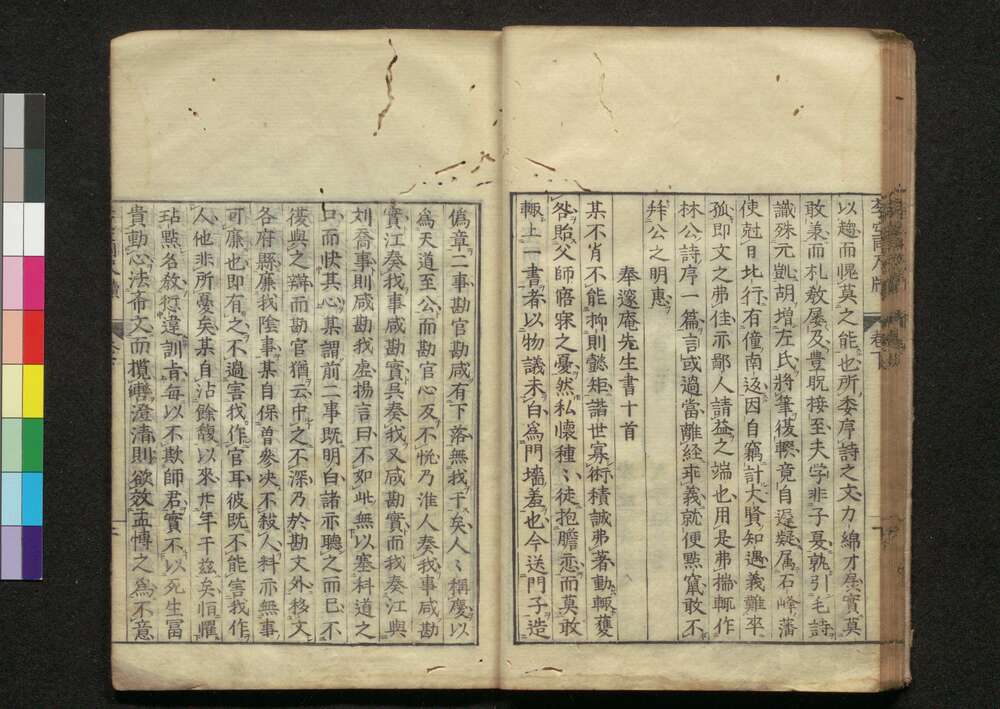 以趐而愰莫之能也所委序詩之文力綿才孱實莫
敢羕而札敎屢及豊貺接至夫字非子夏孰引毛詩
識殊元凱胡增左氏將筆復輟竟自遟疑属石峰藩
使尅日北行有僮南返因自竊計大賢知遇義難卒
孤即文之弗佳亦鄙人請益之端也用是弗揣輒作
林公詩序一篇言或過當離經非義就便點竄敢不
拜公之明惠
奉邃庵先生書十首
某不肖不能抑則懿矩諧世寡術積誠弗著動輒獲
咎貽父師寤寐之憂然私懷種〻徒抱膽恧而莫敢
輙上一書者以物議未白爲門墻羞也今送門子造
僞章二事勘官勘咸有下落無我干矣人〻稱慶以
爲天道至公而勘官心反不恱乃淮人奏我事咸勘
實江奏我事咸勘實具奏我又咸勘實而我奏江與
刘喬事則咸勘我虛揚言曰不如此無以塞科道之
口而快其心某謂前二事既明白諸亦聽之而已不
復與之辯而勘官猶云中之不深乃於勘文外移文
各府縣廉我陰事某自保曾參决不殺人料亦無事
可廉也即有之不過害我作官耳彼既不能害我作
人他非所憂矣某自沾餘馥以來廿年干茲矣恒懼
玷點名敎愆違訓言每以不欺師君實不以死生冨
貴動心法希文而攬轡澄清則欲效孟博之爲不意